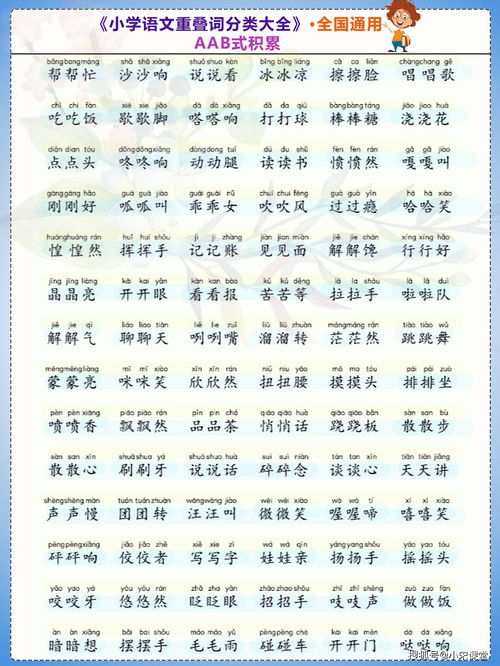 《小学语文重叠词分类大全》·全国通用
AAB式积累
bāng bang máng shā shā xiǎng shuō shuō kàn bīng bīng liáng cā ca liǎn chàng chang gē
帮帮忙 沙沙响 说说看 冰冰凉 擦擦脸 唱唱歌
chī chi fàn xiē xie jiǎo dā dā xiǎng dǎ da qiú bàng bàng táng jiāo jiao huā
吃吃饭 歇歇脚 嗒嗒响 打打球 棒棒糖 浇浇花
diǎn dian tóu dōng dōng xiǎng dòng dong tuǐ dú du shū fèn fèn rán gā gā jiào
点点头 咚咚响 动动腿 读读书 愤愤然 嘎嘎叫
gāng gāng hǎo guā guā jiào guāi guāi nǚ chuī chui fēng guò guo yǐn hā hā xiào
刚刚好 呱呱叫 乖乖女 吹吹风 过过瘾 哈哈笑
huáng huáng rán huī hui shǒu jì ji zhàng jiàn jian miàn jiě jie chán xíng xíng hǎo
惶惶然 挥挥手 记记账 见见面 解解馋 行行好
jīng jīng liàng kāi kai yǎn kàn kan bào kǔ kǔ děng lā la shǒu lā la duì
晶晶亮 开开眼 看看报 苦苦等 拉拉手 啦啦队
jiě jie qì liáo liao tiān liě lie zuǐ liū liū zhuàn máng máng rán tiào tiao wǔ
解解气 聊聊天 咧咧嘴 溜溜转 茫茫然 跳跳舞
mēng mēng liàng mī mī xiào xīn xīn rán niǔ niu yāo mō mo tóu pái pái zuò
蒙蒙亮 咪咪笑 欣欣然 扭扭腰 摸摸头 排排坐
pèn pèn xiāng piāo piāo rán pǐn pin chá qiāo qiāo huà qiāo qiāo bǎn sàn san bù
喷喷香 飘飘然 品品茶 悄悄话 跷跷板 散散步
sàn san xīn shuā shua yá shuō shuo huà suì suì niàn tán tan xīn tiān tiān jiǎng
散散心 刷刷牙 说说话 碎碎念 谈谈心 天天讲
shēng shēng màn tuán tuán zhuàn wāng wāng jiào wēi wēi xiào wō wō tí xī xī xiào
声声慢 团团转 汪汪叫 微微笑 喔喔啼 嘻嘻笑
pēng pēng xiǎng jiǎo jiǎo zhě xiě xie zì wá wa qīn yáng yang shǒu yáo yao tóu
砰砰响 佼佼者 写写字 娃娃亲 扬扬手 摇摇头
yǎo yao yá yōu yōu rán zhǎ zha yǎn zhāo zhao shǒu zhī zhī shēng zuò zuo fàn
咬咬牙 悠悠然 眨眨眼 招招手 吱吱声 做做饭
àn àn xiǎng bǎi bai shǒu máo máo yǔ pèng pèng chē kāi kai mén dā dā xiǎng
暗暗想 摆摆手 毛毛雨 碰碰车 开开门 哒哒响
搜狐号@小宋课堂